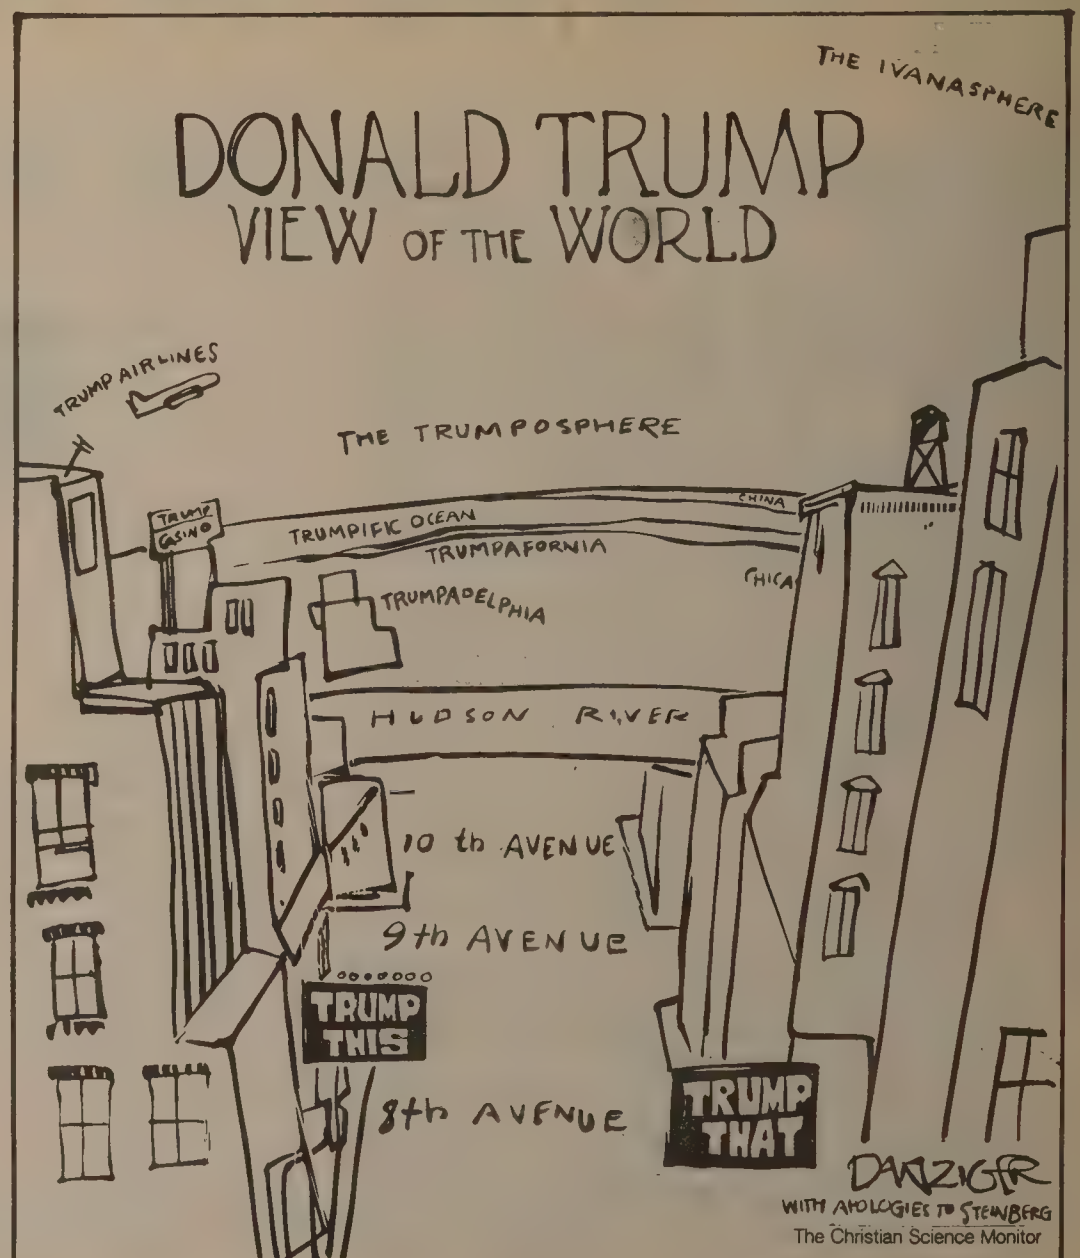 THE IVANASPHERE
DONALD TRUMP
VIEW OF THE WORLD
TRUMP AIRLINES
THE TRUMPOSPHERE
TRUMP
CASINO
CHINA
TRUMPIFIC OCEAN
TRUMPAFORNIA
CHICA
TRUMPADELPHIA
HUDSON RIVER
10th AVENUE
9th AVENUE
TRUMP
THIS
8th AVENUE
TRUMP
THAT
DANZIGER
WITH APOLOGIES TO STEINBERG
The Christian Science Monitor